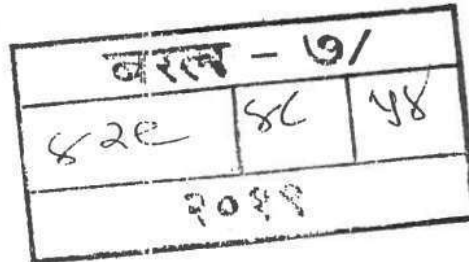 बरल - ७/
४२९ ४८ ५४
२०११